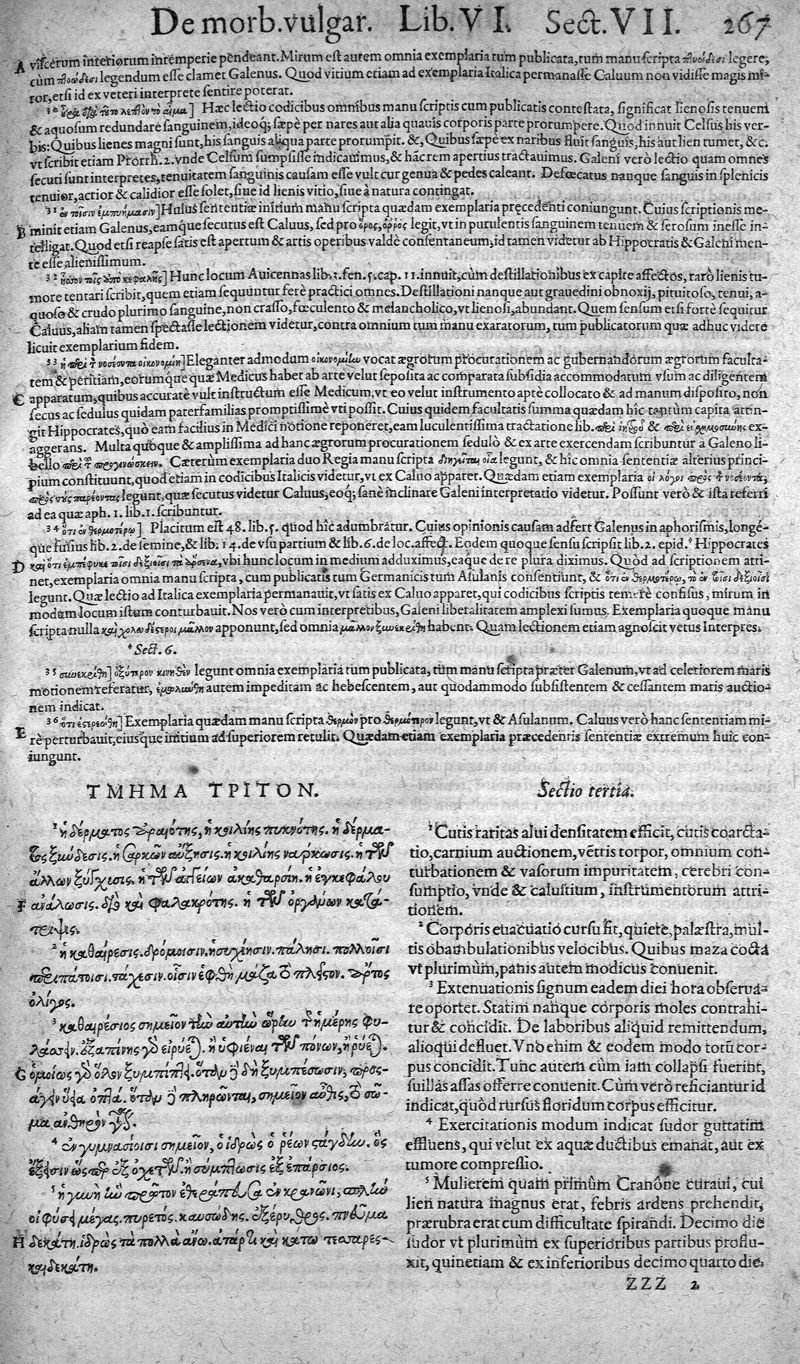 De morb. vulgar. Lib. VI. Sect. VII. 267
A viscerum interiorum intemperie pendeant. Mirum est autem omnia exemplaria tum publicata, tum manu scripta legere,
cùm legendum esse clamet Galenus. Quod vitium etiam ad exemplaria Italica permanasse Caluum non vidisse magis mi-
ror, etsi id ex veteri interprete sentire poterat.
Hæc lectio codicibus omnibus manu scriptis cum publicatis contestata, significat lienosis tenuem
& aquosum redundare sanguinem, ideoq; sæpè per nares aut alia quauis corporis parte prorumpere. Quod innuit Celsus his ver-
bis: Quibus lienes magni sunt, his sanguis aliqua parte prorumpit. &, Quibus sæpe ex naribus fluit sanguis, his aut lien tumet, &c.
vt scribit etiam Prorrh. 2. vnde Celsum sumpsisse indicauimus, & hãc rem apertius tractauimus. Galeni verò lectio quam omnes
secuti sunt interpretes, tenuitatem sanguinis causam esse vult cur genua & pedes caleant. Defœcatus nanque sanguis in splenicis
tenuior, acrior & calidior esse solet, siue id lienis vitio, siue à natura contingat.
31 ὁν τοῖσιν ἐμπυήμασιν] Huius sententiæ initium manu scripta quædam exemplaria præcedenti coniungunt. Cuius scriptionis me-
B minit etiam Galenus, eamque secutus est Caluus, sed pro ὄρος, ὀῤῥος legit, vt in purulentis sanguinem tenuem & serosum inesse in-
telligat. Quod etsi reapse satis est apertum & artis operibus valdè consentaneum, id tamen videtur ab Hippocratis & Galeni men-
te esse alienissimum.
32 ἧσσον τοῖς ἀπὸ κεφαλῆς] Hunc locum Auicennas lib. 3. fen. 5. cap. 11. innuit, cùm destillationibus ex capite affectos, rarò lienis tu-
more tentari scribit, quem etiam sequuntur ferè practici omnes. Destillationi nanque aut grauedini obnoxij, pituitoso, tenui, a-
quoso & crudo plurimo sanguine, non crasso, fœculento & melancholico, vt lienosi, abundant. Quem sensum etsi fortè sequitur
Caluus, aliam tamen spectasse lectionem videtur, contra omnium tum manu exaratorum, tum publicatorum quæ adhuc videre
licuit exemplarium fidem.
33 Eleganter admodum οἰκονομίαν vocat ægrotum procurationem ac gubernandorum ægrorum faculta-
tem & peritiam, eorumque quæ Medicus habet ab arte velut seposita ac comparata subsidia accommodatum vsum ac diligentem
C apparatum, quibus accuratè vult instructum esse Medicum, vt eo velut instrumento aptè collocato & ad manum disposito, non
secus ac sedulus quidam paterfamilias promptissimè vti possit. Cuius quidem facultatis summa quædam hîc tantùm capita attin-
git Hippocrates, quò eam facilius in Medici notione reponeret, eam luculentissima tractatione lib. περὶ ἰητροῦ & περὶ εὐσχημοσύνης ex-
aggerans. Multa quoque & amplissima ad hanc ægrorum procurationem sedulò & ex arte exercendam scribuntur à Galeno li-
bello Cæterùm exemplaria duo Regia manu scripta legunt, & hîc omnia sententiæ alterius princi-
pium constituunt, quod etiam in codicibus Italicis videtur, vt ex Caluo apparet. Quædam etiam exemplaria
legunt, quæ secutus videtur Caluus, eoq; sanè inclinare Galeni interpretatio videtur. Possunt verò & ista referri
ad ea quæ aph. 1. lib. 1. scribuntur.
34 ὅτι ἐν θερμοτέρῳ] Placitum est 48. lib. 5. quod hîc adumbratur. Cuius opinionis causam adfert Galenus in aphorismis, longé-
que fusius lib. 2. de semine, & lib. 14. de vsu partium & lib. 6. de loc. affect. Eodem quoque sensu scripsit lib. 2. epid. * Hippocrates
D vbi hunc locum in medium adduximus, eaque de re plura diximus. Quod ad scriptionem atti-
net, exemplaria omnia manu scripta, cum publicatis tum Germanicis tum Asulanis consentiunt, &
legunt. Quæ lectio ad Italica exemplaria permanauit, vt satis ex Caluo apparet, qui codicibus scriptis temerè confisus, mirum in
modum locum istum conturbauit. Nos verò cum interpretibus, Galeni liberalitatem amplexi sumus. Exemplaria quoque manu
scripta nulla apponunt, sed omnia μᾶλλον ξυνεκρίθη habent. Quam lectionem etiam agnoscit vetus Interpres.
* Sect. 6.
35 συνεκρίθη] ὀξύτερον κινηθὲν legunt omnia exemplaria tum publicata, tùm manu scripta præter Galenum, vt ad celeriorem maris
motionem referatur, autem impeditam ac hebescentem, aut quodammodo subsistentem & cessantem maris auctio-
nem indicat.
36 ὅτι ἐστερεώθη] Exemplaria quædam manu scripta θερμὸν pro θερμότερον legunt, vt & Asulanum. Caluus verò hanc sententiam mi-
E rè perturbauit, eiusque initium ad superiorem retulit. Quædam etiam exemplaria præcedentis sententiæ extremum huic con-
iungunt.
ΤΜΗΜΑ ΤΡΙΤΟΝ.
1 ἡ δέρματος ἀραιότης, ἡ κοιλίης πυκνότης. ἡ δέρμα-
τος ξύνδεσις. ἡ σαρκῶν αὔξησις. ἡ κοιλίης νάρκωσις. ἡ τῶν
ἄλλων ξύγχυσις. ἡ τῶν ἀγγείων ἀκαθαρσίη. ἡ ἐγκεφάλου
F ἀνάλωσις. διὸ καὶ φαλακρότης. ἡ τῶν ὀργάνων κατά-
τριψις.
2 ἡ καθαίρεσις. δρόμοισιν. ἡσυχίῃσιν. πάλῃσι. πολλοῖσι
περιπάτοισι. τάχεσιν. οἷσιν ἑφθὴ μάζα τὸ πλῆστον. ἄρτος
ὀλίγος.
3 καθαιρέσιος σημεῖον τὴν αὐτὴν ὥρην τῆς ἡμέρης φυ-
λάσσειν. ἐξαπίνης γὰρ εἰρύεται. ἢ ὑφιέναι τῶν πόνων, ἢ ῥύεται.
G ὁμοίως γὰρ ὅλον ξυμπίπτει. ὅταν δὲ δὴ ξυμπέσωσιν, προσ-
άγειν ὕεια ὀπτά. ὅταν δὲ πληρῶνται, σημεῖον αὖθις, τὸ σῶ-
μα ἀνθηρὸν γίνεται.
4 ἐν γυμνασίοισι σημεῖον, ὁ ἱδρὼς ὁ ῥέων στάγδην. ὃς
ἔξεισιν ὥσπερ ἐξ ὀχετῶν. ἢ συμπτωσις ἐξ ἐπάρσιος.
5 ἡ γυνὴ ἣν πρῶτον ἐθεράπευσα ἐν κρανῶνι, σπλὴν
οἱ φύσει μέγας. πυρετὸς καυσώδης. ἐξέρυθρος. πνεῦμα
H δεκάτῃ. ἱδρὼς τὰ πολλὰ ἄνω. ἀτὰρ καὶ κάτω τεσσαρες-
καιδεκάτῃ.
Sectio tertia.
1 Cutis raritas alui densitatem efficit, cutis coarcta-
tio, carnium auctionem, vẽtris torpor, omnium con-
turbationem & vasorum impuritatem, cerebri con-
sumptio, vnde & caluitium, instrumentorum attri-
tionem.
2 Corporis euacuatio cursu fit, quiete, palæstra, mul-
tis obambulationibus velocibus. Quibus maza cocta
vt plurimùm, panis autem modicus conuenit.
3 Extenuationis signum eadem diei hora obserua-
re oportet. Statim nanque corporis moles contrahi-
tur & concidit. De laboribus aliquid remittendum,
alioqui defluet. Vno enim & eodem modo totũ cor-
pus concidit. Tunc autem cùm iam collapsi fuerint,
suillas assas offerre conuenit. Cùm verò reficiantur id
indicat, quòd rursus floridum corpus efficitur.
4 Exercitationis modum indicat sudor guttatim
effluens, qui velut ex aquæ ductibus emanat, aut ex
tumore compressio.
5 Mulierem quam primùm Cranone curaui, cui
lien natura magnus erat, febris ardens prehendit,
prærubra erat cum difficultate spirandi. Decimo die
sudor vt plurimùm ex superioribus partibus proflu-
xit, quinetiam & ex inferioribus decimo quarto die.
ZZZ 2